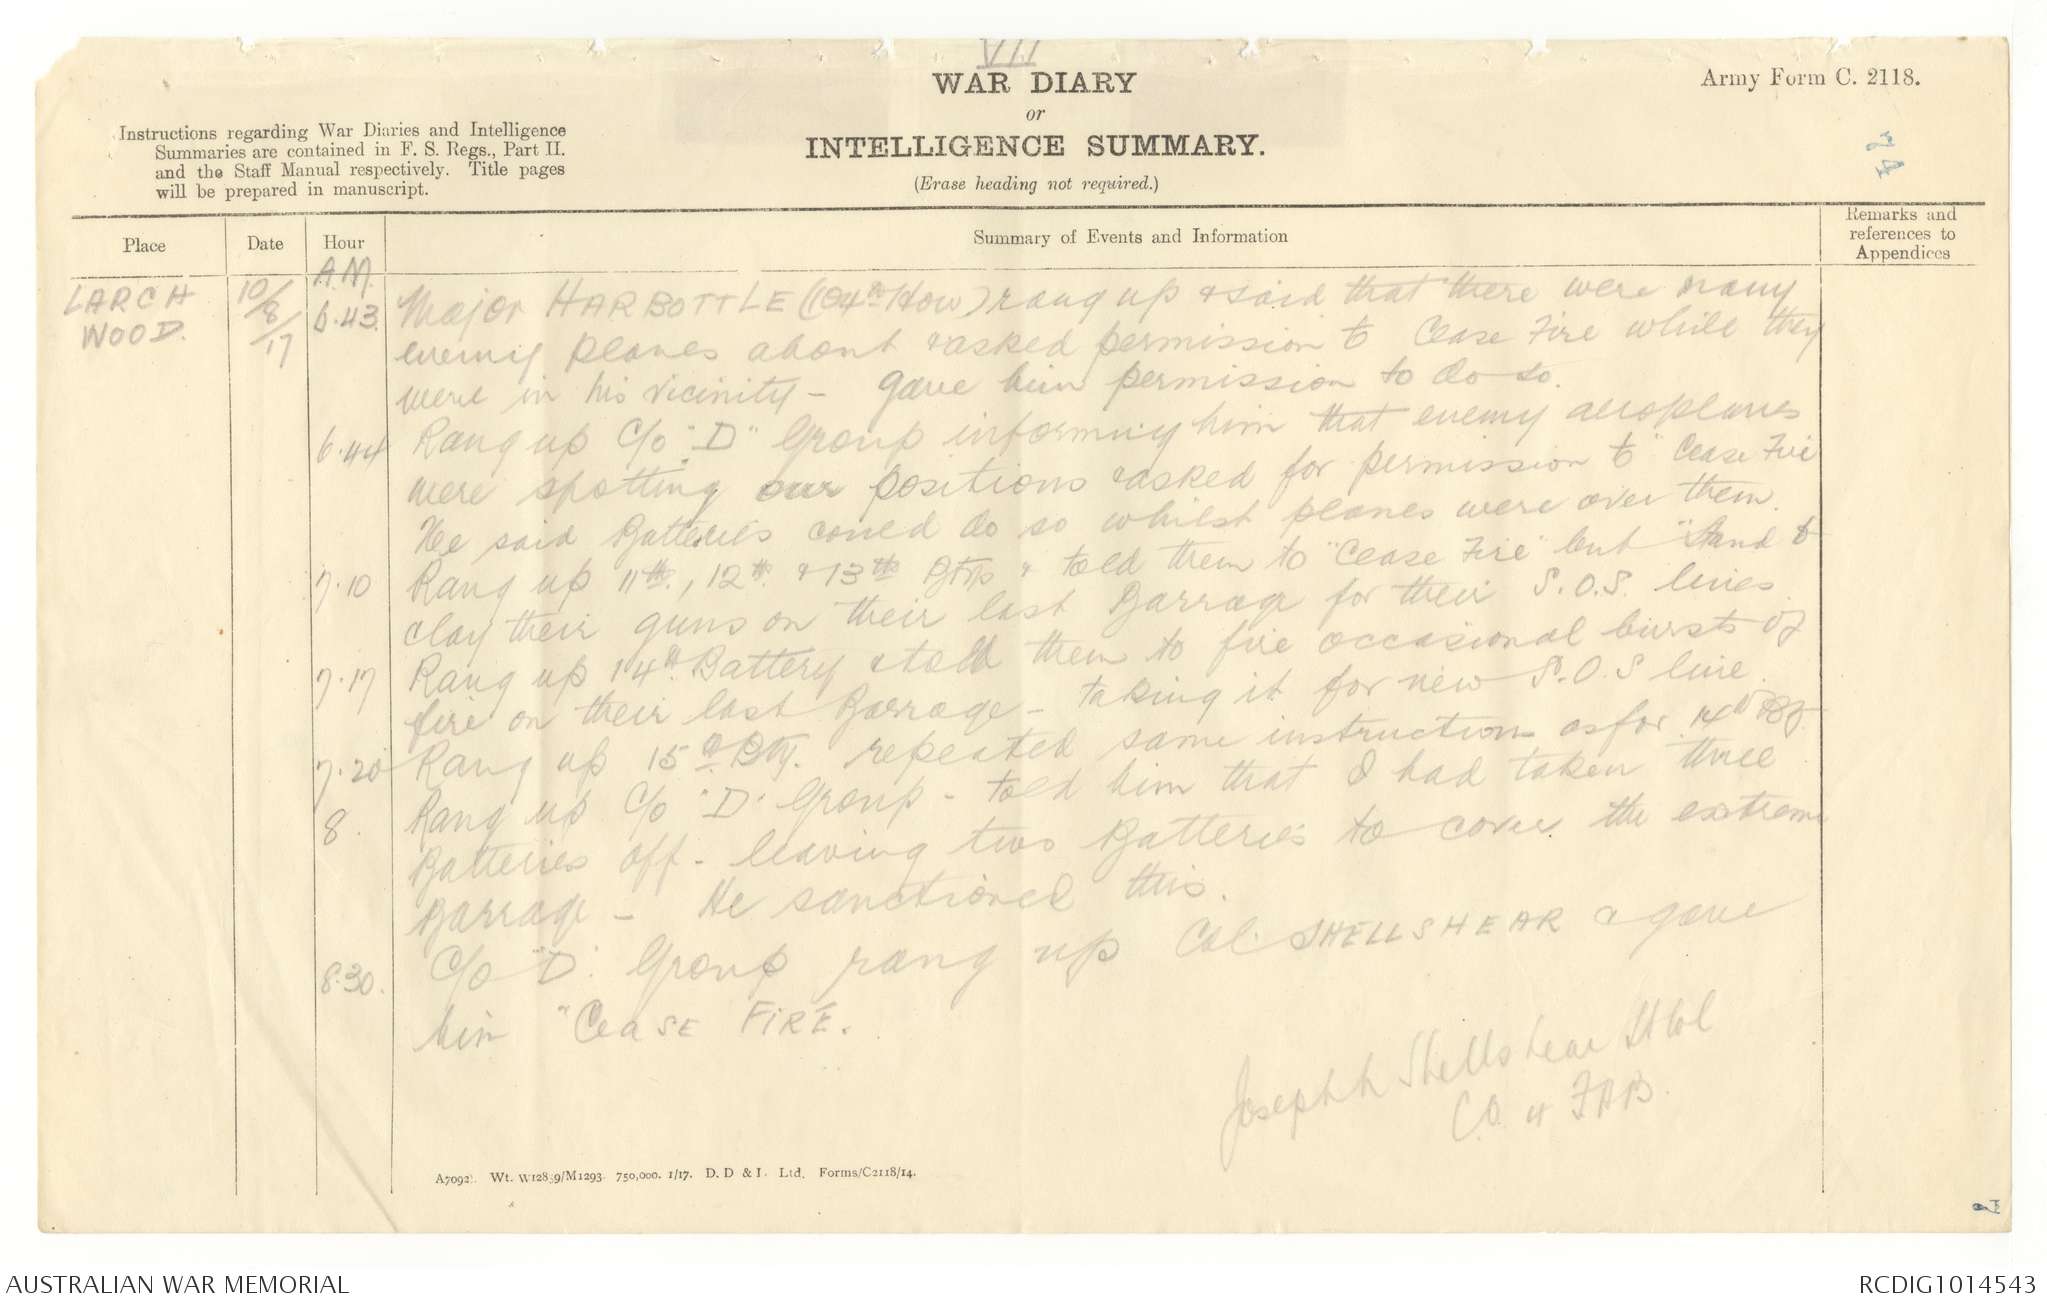 VII
WAR DIARY
or
INTELLIGENCE SUMMARY.
(Erase heading not required.)
Army Form C. 2118.
Instructions regarding War Diaries and Intelligence
Summaries are contained in F. S. Regs., Part II.
and the Staff Manual respectively. Title pages
will be prepared in manuscript.
Place
Date
Hour
Summary of Events and Information
Remarks and
references to
Appendices
LARCH
WOOD.
10/8/17
A.M.
6.43. Major HARBOTTLE (104th How) rang up & said that there were many
enemy planes about & asked permission to Cease Fire while they
were in his vicinity - gave him permission to do so.
6.44 Rang up C/o "D" Group informing him that enemy aeroplanes
were spotting our positions & asked for permission to "Cease Fire
He said Batteries could do so whilst planes were over them.
7.10 Rang up 11th, 12th & 13th Btys & told them to "Cease Fire" but "Stand to
& lay their guns on their last Barrage for their S.O.S. lines.
7.17 Rang up 14th Battery & told them to fire occasional bursts of
fire on their last Barrage - taking it for new S.O.S line.
7.20 Rang up 15th Bty. repeated same instructions as for 14th Bty.
8. Rang up C/o "D" Group - told him that I had taken three
Batteries off - leaving two Batteries to cover the extreme
Barrage - He sanctioned this.
8.30. C/o "D" Group rang up Col. SHELLSHEAR & gave
him "Cease FIRE.
Joseph Shellshear Lt Col
C.O. 4 FAB.
Wt. W12839/M1293. 750,000. 1/17. D. D & L. Ltd. Forms/C2118/14.
AUSTRALIAN WAR MEMORIAL
RCDIG1014543